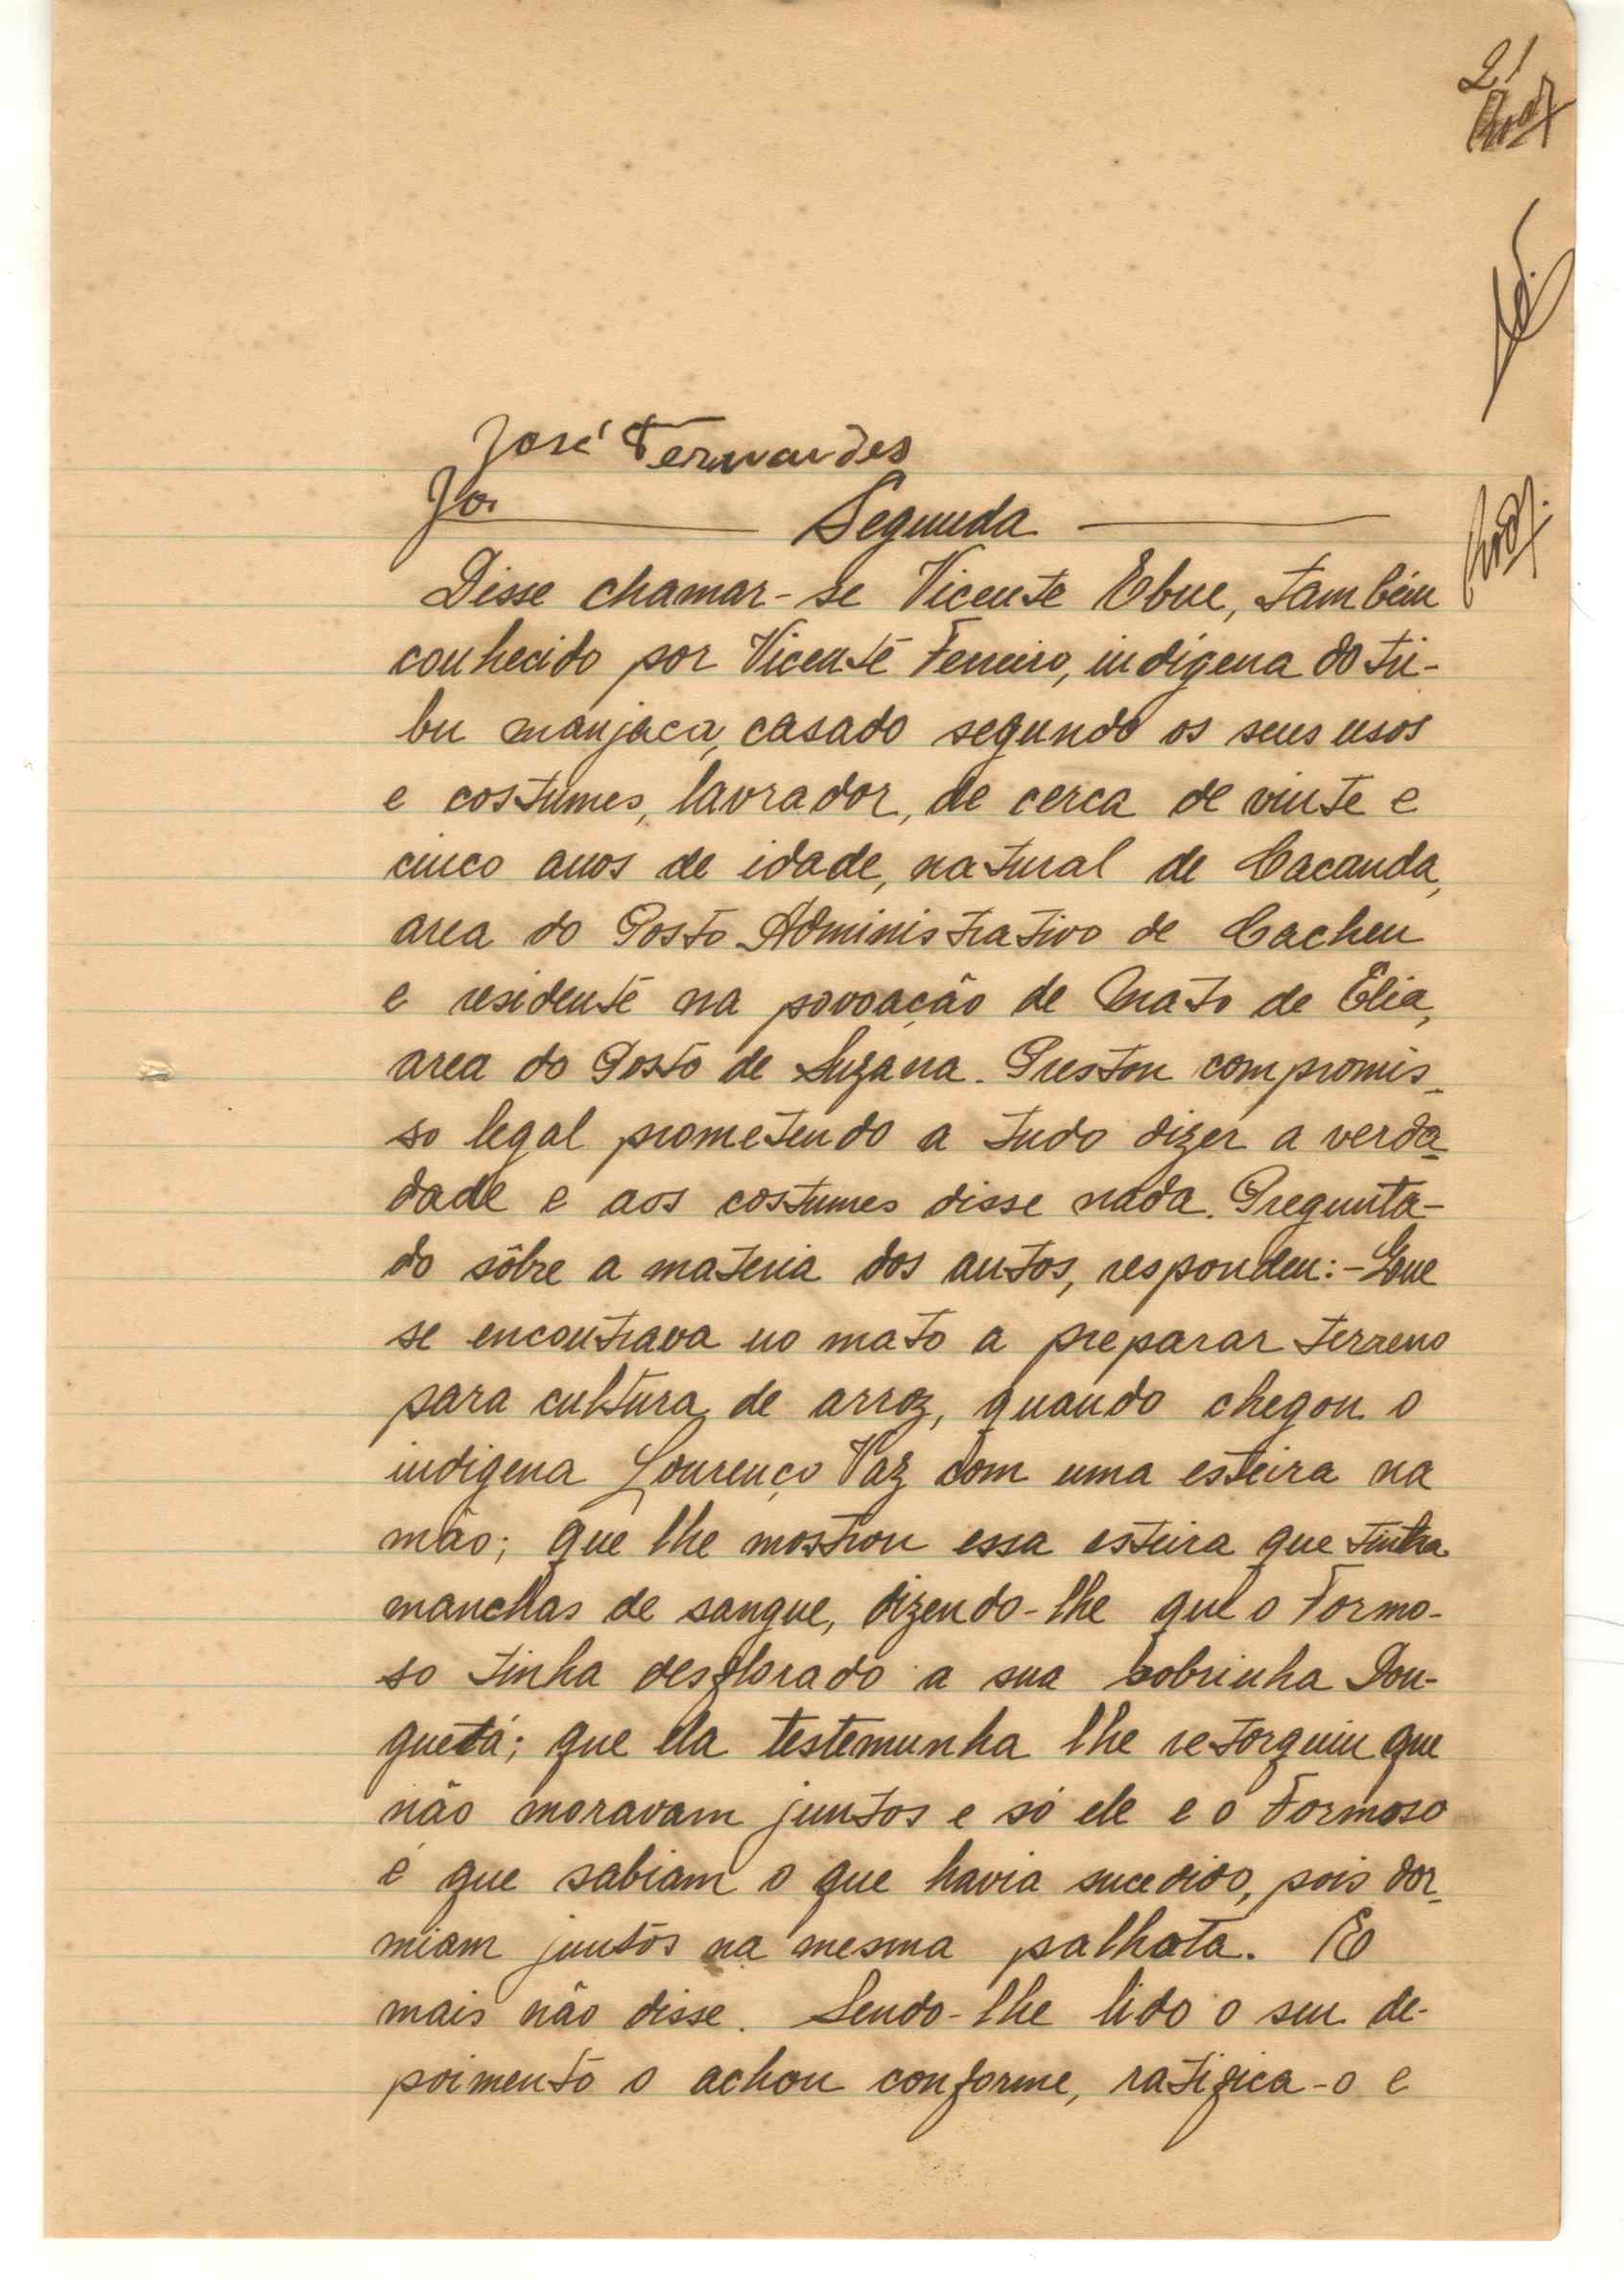 21
José Fernandes
Jo. Segunda
Disse chamar-se Vicente Ebue, também
conhecido por Vicente Ferreiro, indígena do tri-
bu manjaca, casado segundo os seus usos
e costumes, lavrador, de cerca de vinte e
cinco anos de idade, natural de Cacanda,
area do Posto Administrativo de Cacheu
e residente na povoação de Mato de Elia,
area do Posto de Suzana. Prestou compromis-
so legal prometendo a tudo dizer a verda-
dade e aos costumes disse nada. Pregunta-
do sôbre a materia dos autos, respondeu:-Que
se encontrava no mato a preparar terreno
para cultura de arroz, quando chegou o
indigena Lourenço Vaz com uma esteira na
mão; que lhe mostrou essa esteira que tinha
manchas de sangue, dizendo-lhe que o Formo-
so tinha desflorado a sua sobrinha Don-
guetá; que ela testemunha lhe retorquiu que
não moravam juntos e só ele e o Formoso
é que sabiam o que havia sucedido, pois dor-
miam juntos na mesma palhota. E
mais não disse. Sendo-lhe lido o seu de-
poimento o achou conforme, ratifica-o e